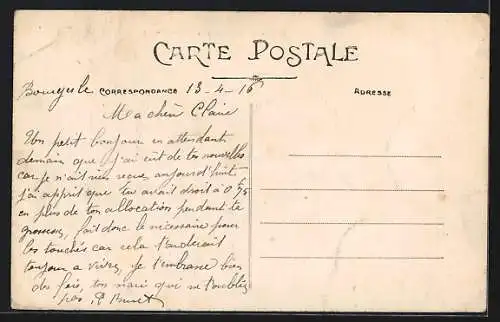 CARTE POSTALE
Bourges le CORRESPONDANCE 13-4-16
ADRESSE
Ma chèr Claire
Un petit bonjour en attendant
demain que j'ai eut de tes nouvelles
car je n'ait rien reçue aujourd'huit
j'ai apprit que tu avait droit à 0,75
en plus de ton allocation pendant ta
grossesse, fait donc le nécessaire pour
les touchés car cela t'aiderait
toujour a vivre, je t'embrasse bien
des fois, ton mari qui ne t'oublie
pas